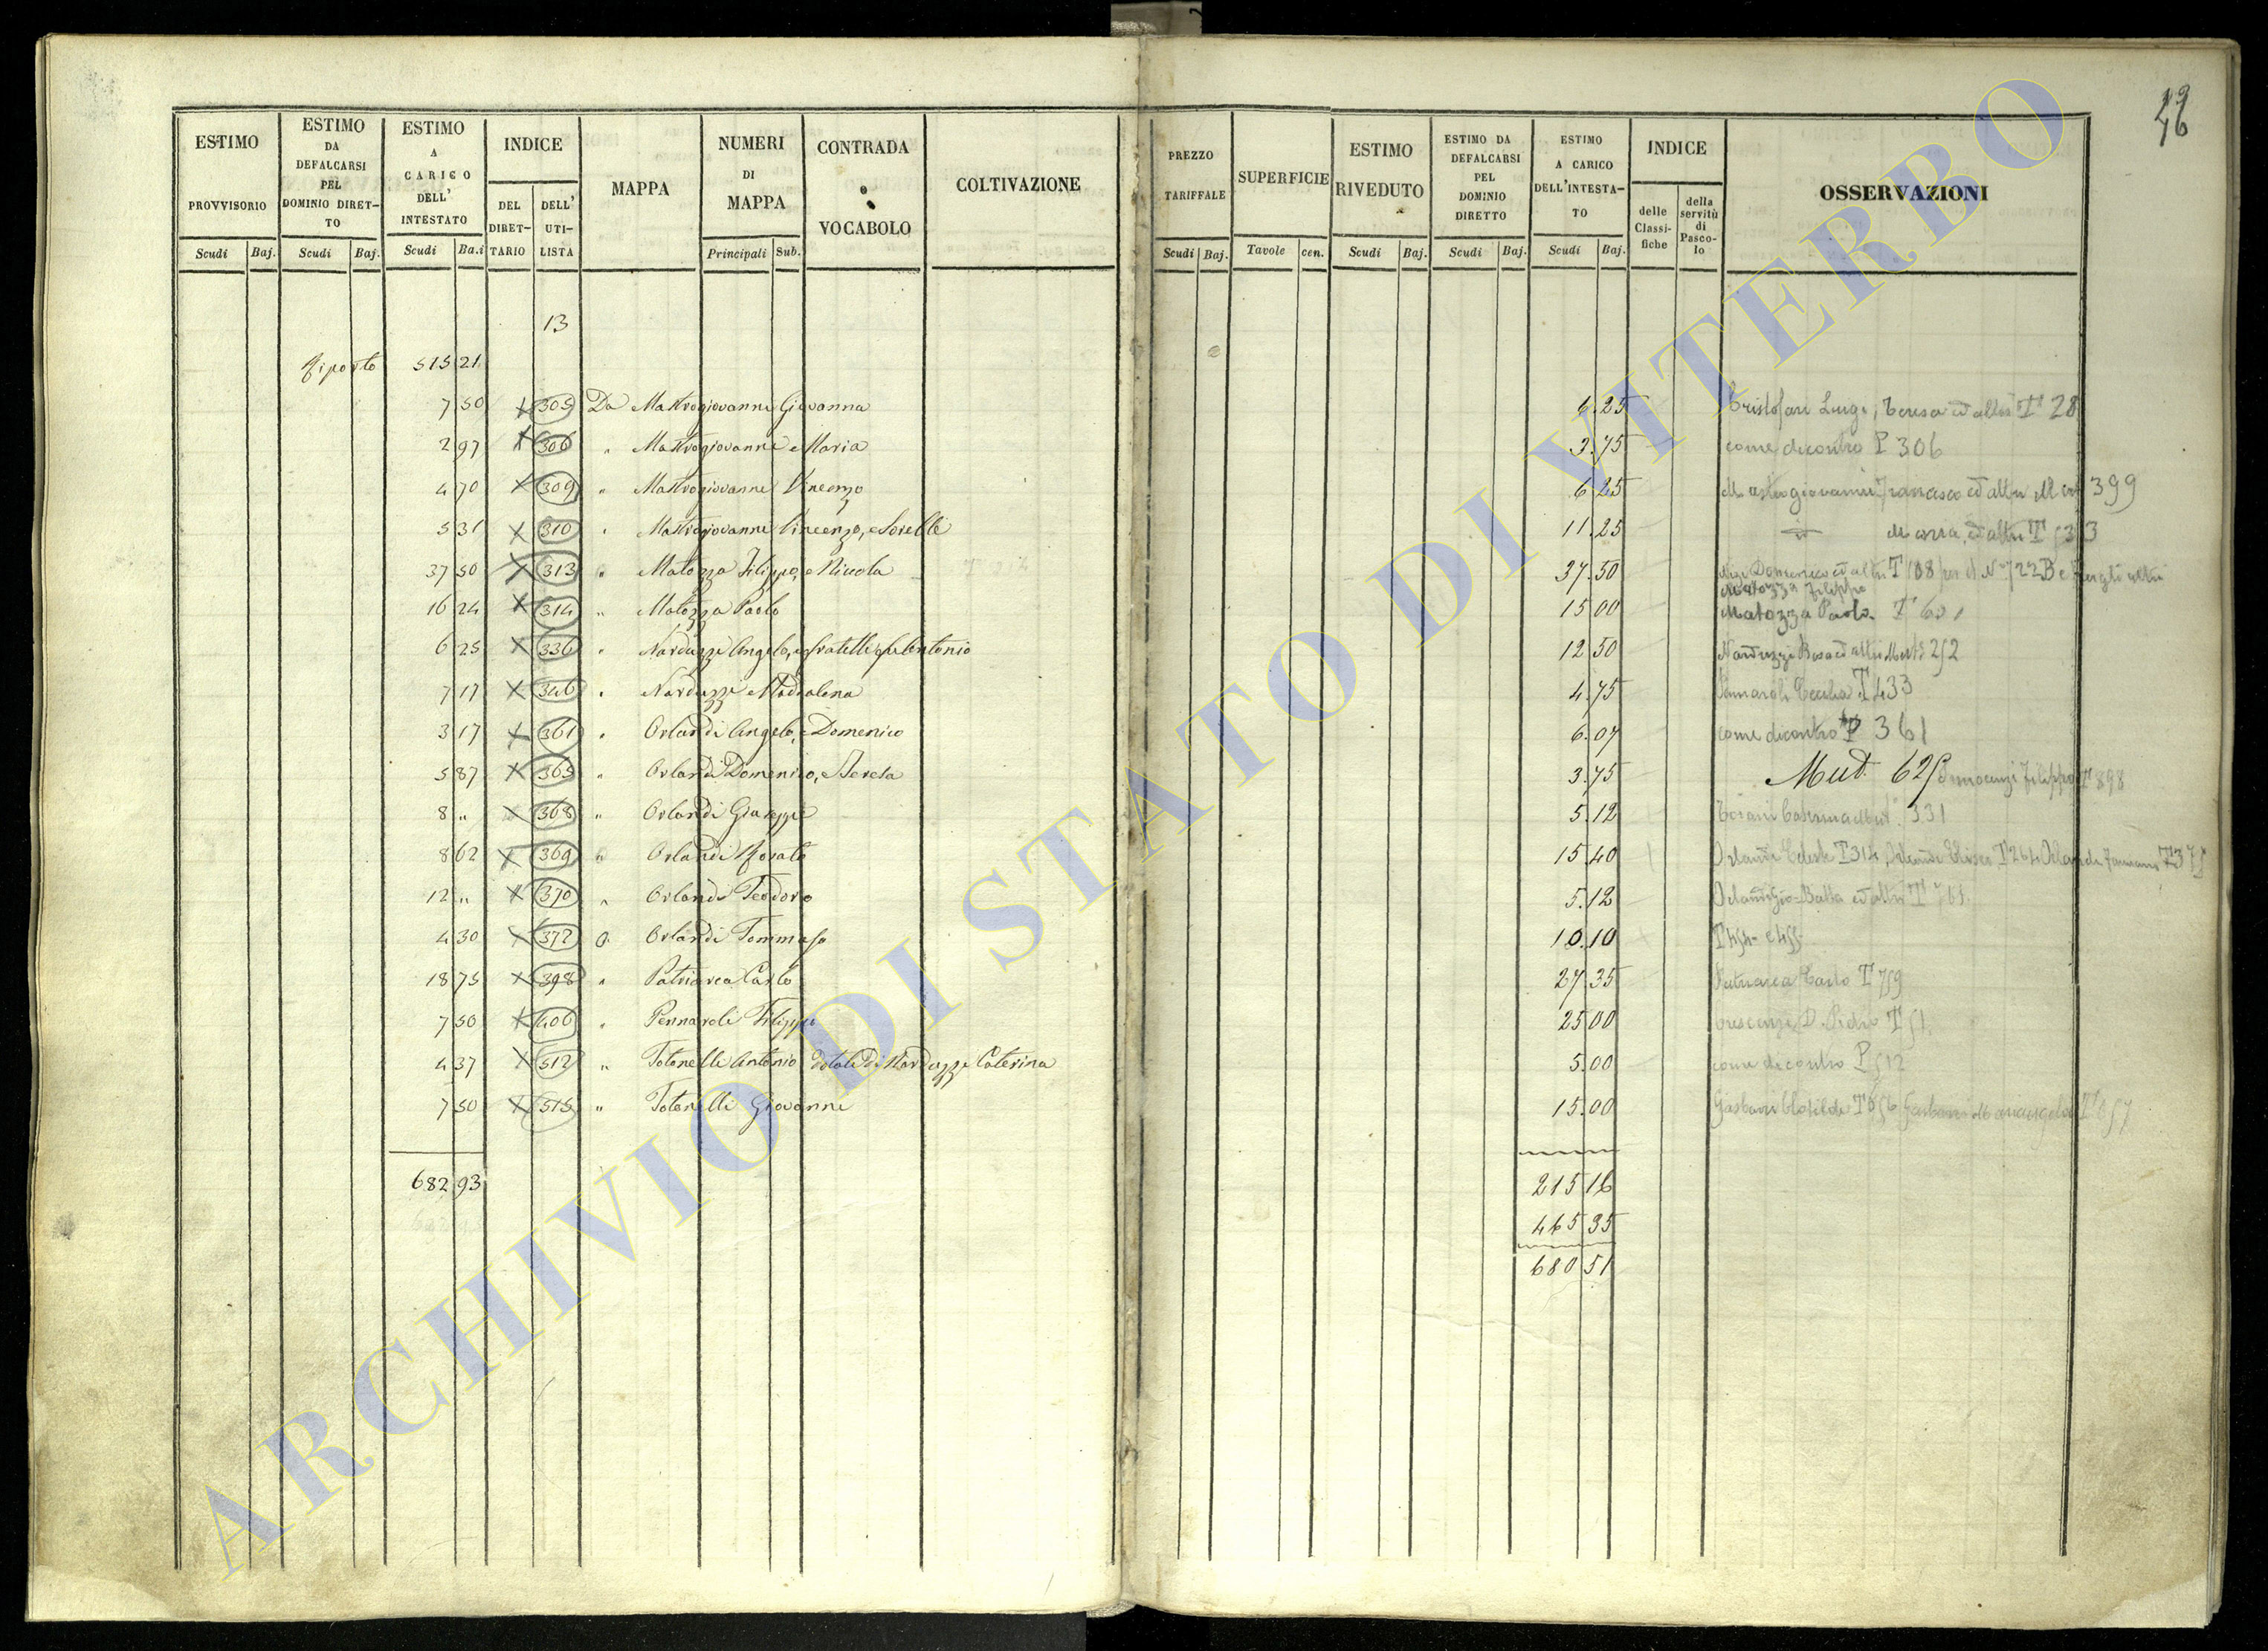 46
ESTIMO PROVVISORIO Scudi Baj.
ESTIMO DA DEFALCARSI PEL DOMINIO DIRETTO Scudi Baj.
ESTIMO A CARICO DELL' INTESTATO Scudi Ba.i
INDICE DEL DIRETTARIO DELL' UTILISTA
MAPPA
NUMERI DI MAPPA Principali Sub.
CONTRADA e VOCABOLO
COLTIVAZIONE
PREZZO TARIFFALE Scudi Baj.
SUPERFICIE Tavole cen.
ESTIMO RIVEDUTO Scudi Baj.
ESTIMO DA DEFALCARSI PEL DOMINIO DIRETTO Scudi Baj.
ESTIMO A CARICO DELL'INTESTATO Scudi Baj.
INDICE delle Classifiche della servitù di Pascolo
OSSERVAZIONI
13
Riporto 515 21
7 50 X 305 Da Mastrogiovanni Giovanna 6.25 Cristofari Luigi, Teresa ed altri T 28
2 97 X 306 " Mastrogiovanni Maria 3.75 come dicontro P 306
4 70 X 309 " Mastrogiovanni Vincenzo 6 25 Mastrogiovanni Francesco ed altri 399
5 31 X 310 " Mastrogiovanni Vincenzo, e Sorelle 11.25 ed altri T
37 50 X 313 " Matozza Filippo, e Nicola 37.50 Domenico ed altri T 108 per il N° 722
Matozza Filippo
16 24 X 314 " Matozza Paolo 15 00 Matozza Paolo T
6 25 X 336 " Narduzzi Angelo, e fratelli q. Antonio 12 50 Narduzzi Rosa ed altri Mut. 252
7 17 X 346 " Narduzzi Madalena 4.75 Pennaroli Cecilia T 433
3 17 X 361 " Orlandi Angelo, e Domenico 6.07 come dicontro P 361
5 87 X 365 " Orlandi Domenico, e Teresa 3.75 Mut. 625 Innocenzi Filippo T 898
8 " X 368 " Orlandi Giuseppe 5.12 331
8 62 X 369 " Orlandi Rosato 15.40 Orlandi Celeste T 314 Orlandi T 264 Orlandi T 375
12 " X 370 " Orlandi Teodoro 5.12 Orlandi Gio=Batta ed altri T
4 30 X 372 " Orlandi Tommaso 10.10 T 454 e 455
18 75 X 398 " Patriarca Carlo 27.35 Patriarca Carlo T 759
7 50 X 406 " Pennaroli Filippo 25 00 Crescenzi D. Pietro T 51
4 37 X 512 " Totonelli Antonio dotali di Narduzzi Caterina 5.00 come dicontro P 512
7 50 X 515 " Totonelli Giovanni 15.00 Gasbarri Clotilde T 856 Gasbarri Mariangela T 857
682 93
215 16
465 35
680 51
ARCHIVIO DI STATO DI VITERBO